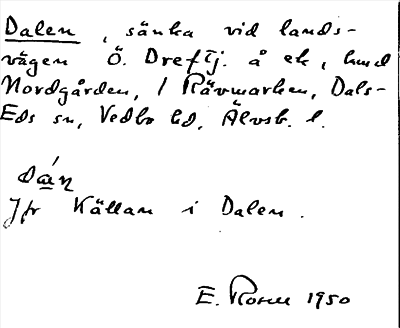 Dalen, sänka vid lands-
vägen Ö. Dreftj. å ek, hmd
Nordgården, / Rävmarken, Dals-
Eds sn, Vedbo hd, Älvsb. l.
dán
Jfr Källan i Dalen.
E. 1950